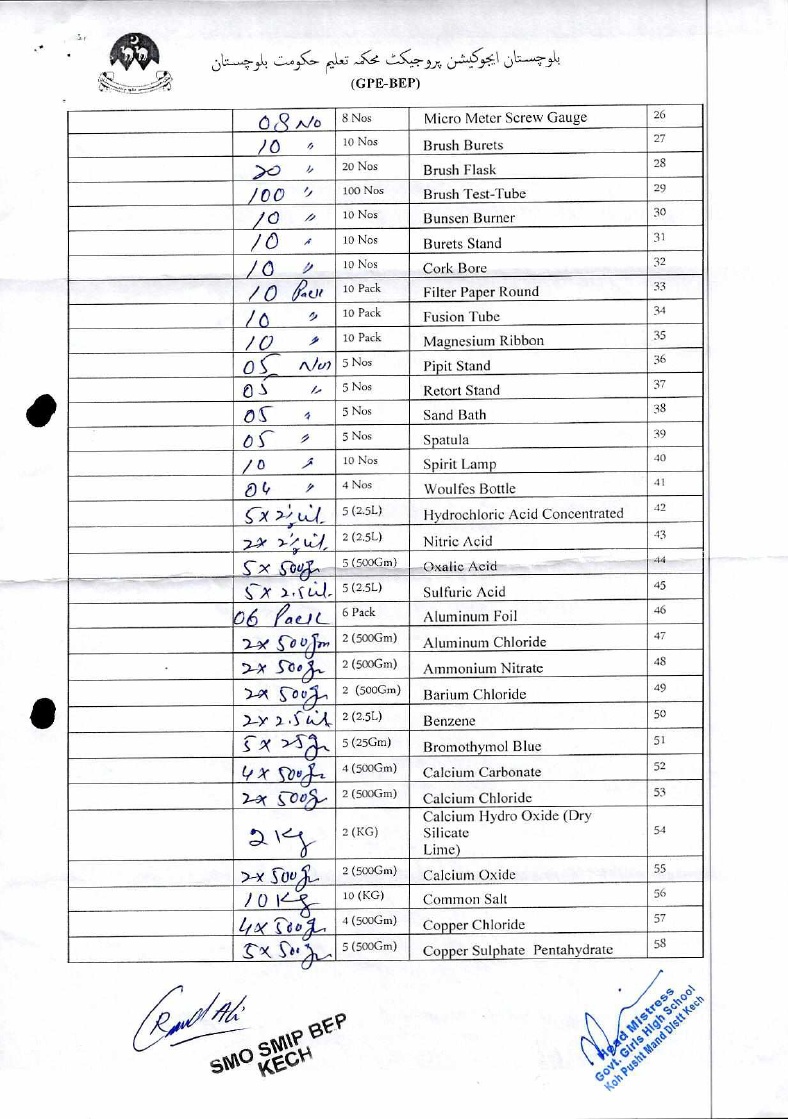 بلوچستان ایجوکیشن پروجیکٹ محکمہ تعلیم حکومت بلوچستان
(GPE-BEP)
08 No 8 Nos Micro Meter Screw Gauge 26
10 " 10 Nos Brush Burets 27
20 " 20 Nos Brush Flask 28
100 " 100 Nos Brush Test-Tube 29
10 " 10 Nos Bunsen Burner 30
10 " 10 Nos Burets Stand 31
10 " 10 Nos Cork Bore 32
10 Pack 10 Pack Filter Paper Round 33
10 " 10 Pack Fusion Tube 34
10 " 10 Pack Magnesium Ribbon 35
05 Nos 5 Nos Pipit Stand 36
05 " 5 Nos Retort Stand 37
05 " 5 Nos Sand Bath 38
05 " 5 Nos Spatula 39
10 " 10 Nos Spirit Lamp 40
04 " 4 Nos Woulfes Bottle 41
5 x 5 (2.5L) Hydrochloric Acid Concentrated 42
2 x 2 (2.5L) Nitric Acid 43
5 x 500g 5 (500Gm) Oxalic Acid 44
5 x 2.5 5 (2.5L) Sulfuric Acid 45
06 Pack 6 Pack Aluminum Foil 46
2 x 500gm 2 (500Gm) Aluminum Chloride 47
2 x 500g 2 (500Gm) Ammonium Nitrate 48
2 x 500g 2 (500Gm) Barium Chloride 49
2 x 2.5 2 (2.5L) Benzene 50
5 x 25g 5 (25Gm) Bromothymol Blue 51
4 x 500g 4 (500Gm) Calcium Carbonate 52
2 x 500g 2 (500Gm) Calcium Chloride 53
2 Kg 2 (KG) Calcium Hydro Oxide (Dry
Silicate
Lime) 54
2 x 500g 2 (500Gm) Calcium Oxide 55
10 Kg 10 (KG) Common Salt 56
4 x 500g 4 (500Gm) Copper Chloride 57
5 x 500g 5 (500Gm) Copper Sulphate Pentahydrate 58
Ali
SMO SMIP BEP
KECH
Head Mistress
Govt. Girls High School
Koh Pusht Mand Distt Kech